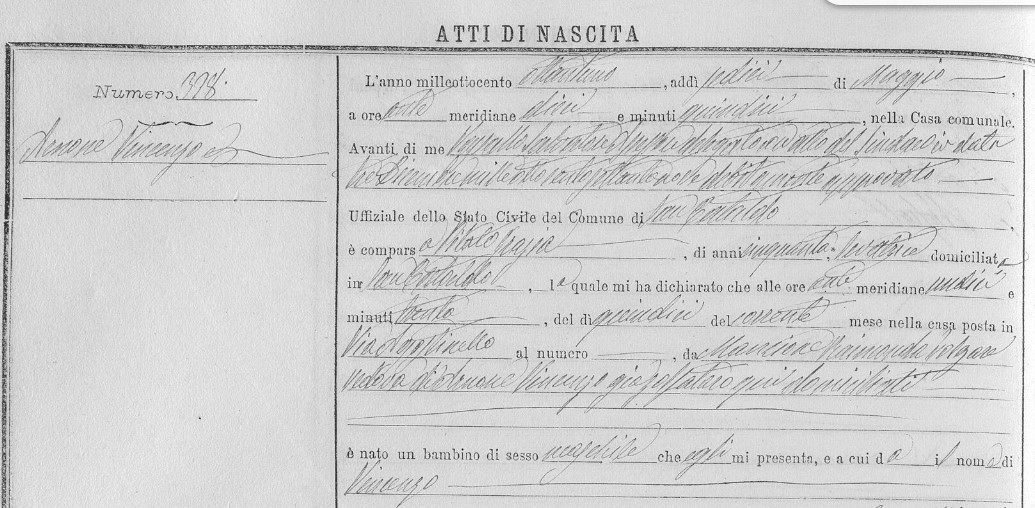 ATTI DI NASCITA
Numero 378.
Vincenzo
L'anno milleottocento ottantuno, addì sedici di Maggio,
a ore ante meridiane dieci e minuti quindici, nella Casa comunale.
Avanti di me Salvatore del Sindaco in data
milleotto approvato
Uffiziale dello Stato Civile del Comune di San Cataldo
è comparsa Vitale, di anni cinquanta, levatrice domiciliata
in San Cataldo, la quale mi ha dichiarato che alle ore ante meridiane undici e
minuti trenta, del dì quindici del corrente mese nella casa posta in
Via al numero, da Raimonda
vedova di Vincenzo qui domiciliati
è nato un bambino di sesso maschile che egli mi presenta, e a cui dà il nome di
Vincenzo